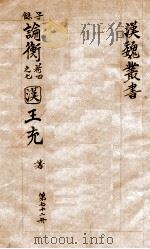 漢魏叢書
子餘
論衡
卷四之七
漢
王充
著
第五十八冊